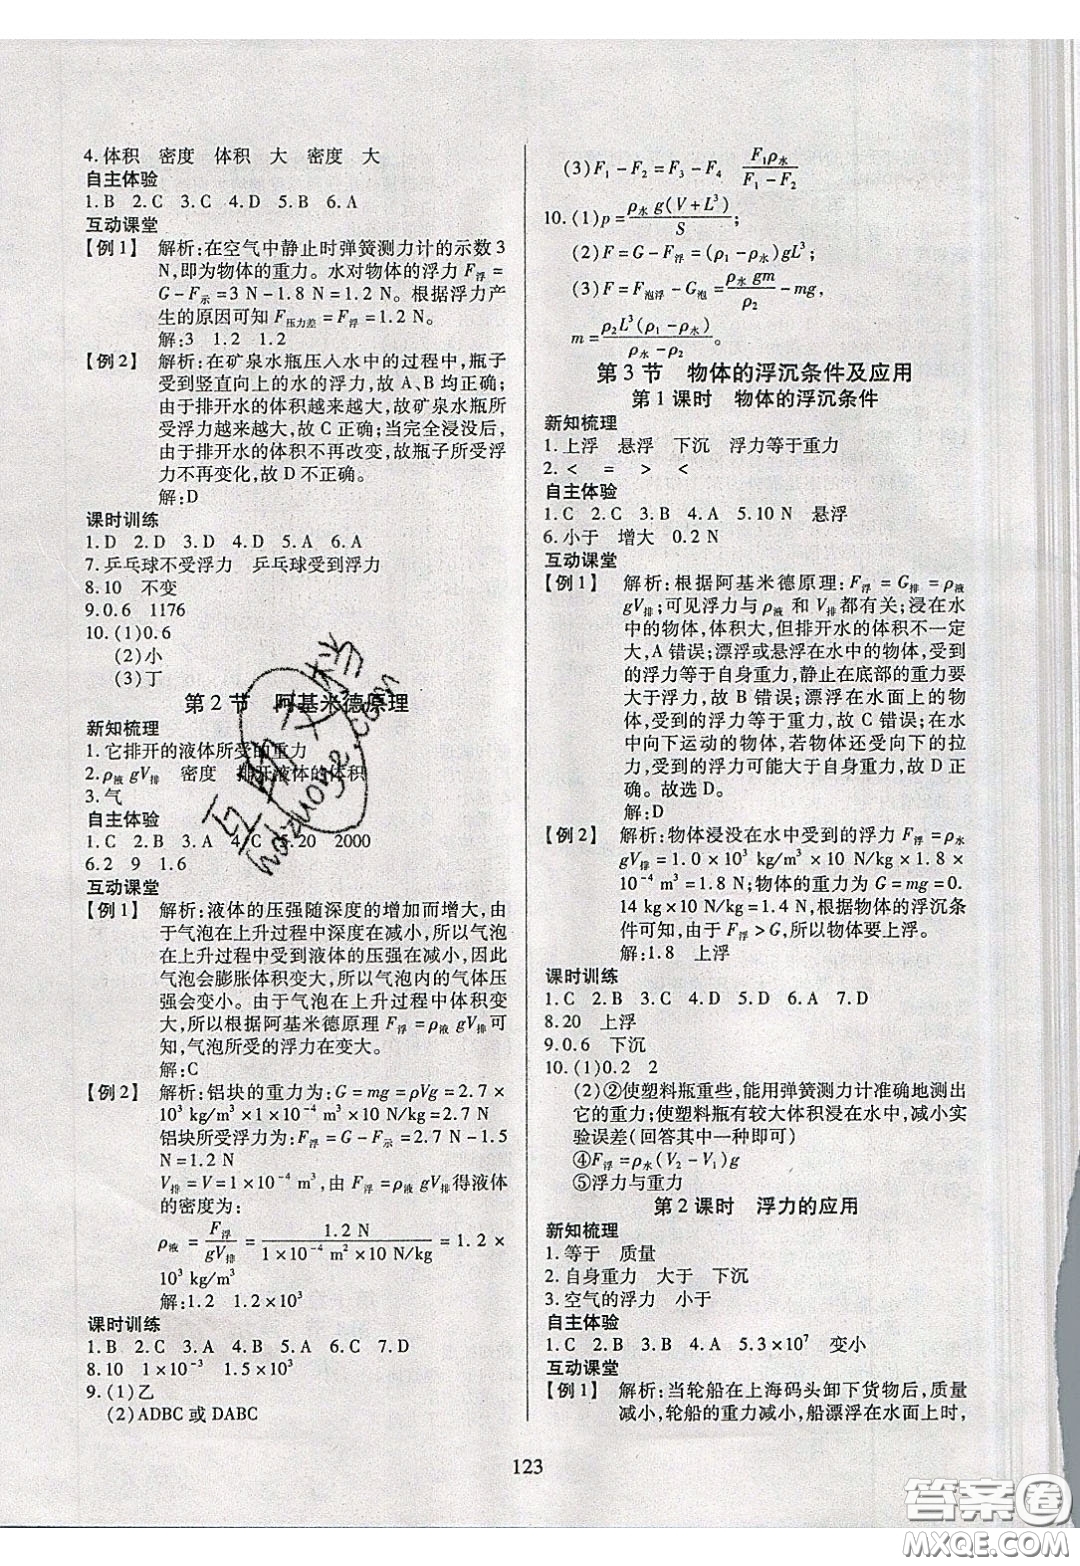 4.体积　密度　体积　大　密度　大
自主体验
1.B　2.C　3.C　4.D　5.B　6.A
互动课堂
【例1】　解析:在空气中静止时弹簧测力计的示数3
N,即为物体的重力。水对物体的浮力F浮=
G-F示=3 N-1.8 N=1.2 N。根据浮力产
生的原因可知F压力差=F浮=1.2 N。
解:3　1.2　1.2
【例2】　解析:在矿泉水瓶压入水中的过程中,瓶子
受到竖直向上的水的浮力,故A、B均正确;
由于排开水的体积越来越大,故矿泉水瓶所
受浮力越来越大,故C正确;当完全浸没后,
由于排开水的体积不再改变,故瓶子所受浮
力不再变化,故D不正确。
解:D
课时训练
1.D　2.D　3.D　4.B　5.A　6.A
7.乒乓球不受浮力　乒乓球受到浮力
8.10　不变
9.0.6　1176
10.(1)0.6
(2)小
(3)丁
第2节　阿基米德原理
新知梳理
1.它排开的液体所受的重力
2.ρ液gV排　密度　排开液体的体积
3.气
自主体验
1.C　2.B　3.A　4.C　5.20　2000
6.2　9　1.6
互动课堂
【例1】　解析:液体的压强随深度的增加而增大,由
于气泡在上升过程中深度在减小,所以气泡
在上升过程中受到液体的压强在减小,因此
气泡会膨胀体积变大,所以气泡内的气体压
强会变小。由于气泡在上升过程中体积变
大,所以根据阿基米德原理F浮=ρ液gV排可
知,气泡所受的浮力在变大。
解:C
【例2】　解析:铝块的重力为:G=mg=ρVg=2.7×
10³ kg/m³×1×10⁻⁴ m³×10 N/kg=2.7 N
铝块所受浮力为:F浮=G-F示=2.7 N-1.5
N=1.2 N
V排=V=1×10⁻⁴ m³,由F浮=ρ液gV排得液体
的密度为:
ρ液=F浮/gV排=1.2 N/(1×10⁻⁴ m²×10 N/kg)=1.2×
10³ kg/m³
解:1.2　1.2×10³
课时训练
1.B　2.C　3.A　4.B　5.A　6.C　7.D
8.10　1×10⁻³　1.5×10³
9.(1)乙
(2)ADBC或DABC
(3)F₁-F₂=F₃-F₄　F₁ρ水/(F₁-F₂)
10.(1)p=ρ水g(V+L³)/S;
(2)F=G-F浮=(ρ₁-ρ水)gL³;
(3)F=F泡浮-G泡=ρ水gm/ρ₂-mg,
m=ρ₂L³(ρ₁-ρ水)/(ρ水-ρ₂)。
第3节　物体的浮沉条件及应用
第1课时　物体的浮沉条件
新知梳理
1.上浮　悬浮　下沉　浮力等于重力
2.<　=　>　<
自主体验
1.C　2.C　3.B　4.A　5.10 N　悬浮
6.小于　增大　0.2 N
互动课堂
【例1】　解析:根据阿基米德原理:F浮=G排=ρ液
gV排;可见浮力与ρ液和V排都有关;浸在水
中的物体,体积大,但排开水的体积不一定
大,A错误;漂浮或悬浮在水中的物体,受到
的浮力等于自身重力,静止在底部的重力要
大于浮力,故B错误;漂浮在水面上的物
体,受到的浮力等于重力,故C错误;在水
中向下运动的物体,若物体还受向上的拉
力,受到的浮力可能大于自身重力,故D正
确。故选D。
解:D
【例2】　解析:物体浸没在水中受到的浮力F浮=ρ水
gV排=1.0×10³ kg/m³×10 N/kg×1.8×
10⁻⁴ m³=1.8 N;物体的重力为G=mg=0.
14 kg×10 N/kg=1.4 N,根据物体的浮沉条
件可知,由于F浮>G,所以物体要上浮。
解:1.8　上浮
课时训练
1.C　2.B　3.B　4.D　5.B　6.A　7.D
8.20　上浮
9.0.6　下沉
10.(1)0.2　2
(2)②使塑料瓶重些,能用弹簧测力计准确地测出
它的重力;使塑料瓶有较大体积浸在水中,减小实
验误差(回答其中一种即可)
④F浮=ρ水(V₂-V₁)g
⑤浮力与重力
第2课时　浮力的应用
新知梳理
1.等于　质量
2.自身重力　大于　下沉
3.空气的浮力　小于
自主体验
1.C　2.B　3.B　4.A　5.3×10⁷　变小
互动课堂
【例1】　解析:当轮船在上海码头卸下货物后,质量
减小,轮船的重力减小,船漂浮在水面上时,
123
互助文档
hdzuoye.com
答案圈
MXQE.COM